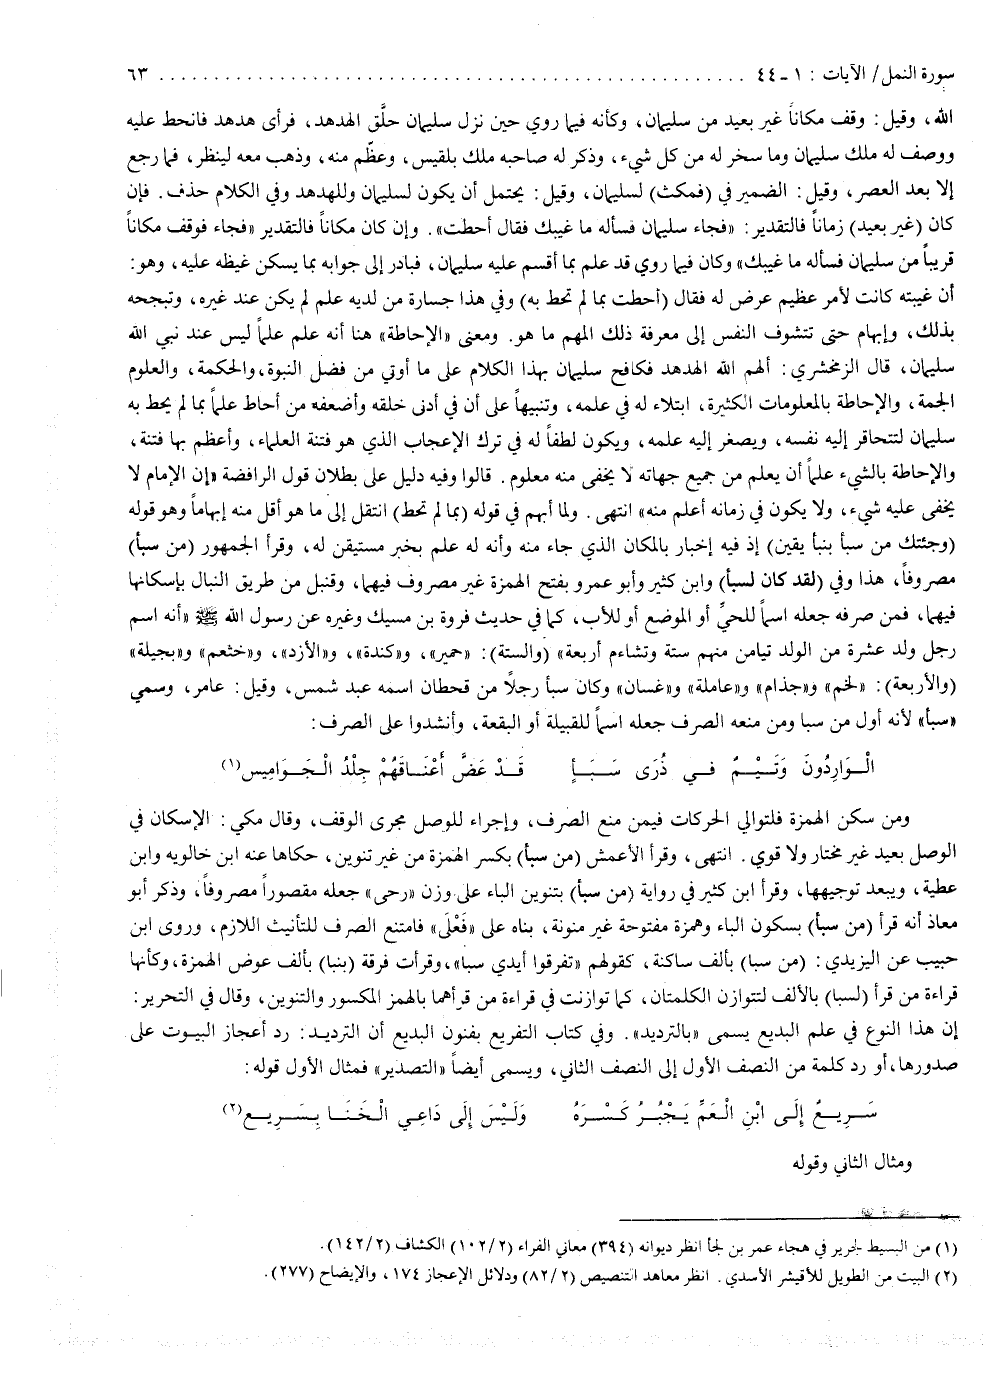 سورة النمل/ الآيات : ١ ـ ٤٤ ............................................................ ٦٣
الله، وقيل : وقف مكاناً غير بعيد من سليمان، وكأنه فيما روي حين نزل سليمان حلَّق الهدهد، فرأى هدهد فانحط عليه
ووصف له ملك سليمان وما سخر له من كل شيء، وذكر له صاحبه ملك بلقيس، وعظّم منه، وذهب معه لينظر، فما رجع
إلا بعد العصر، وقيل : الضمير في (فمكث) لسليمان، وقيل : يحتمل أن يكون لسليمان وللهدهد وفي الكلام حذف. فإن
كان (غير بعيد) زماناً فالتقدير: «فجاء سليمان فسأله ما غيبك فقال أحطت». وإن كان مكاناً فالتقدير «فجاء فوقف مكاناً
قريباً من سليمان فسأله ما غيبك» وكان فيما روي قد علم بما أقسم عليه سليمان، فبادر إلى جوابه بما يسكن غيظه عليه، وهو:
أن غيبته كانت لأمر عظيم عرض له فقال (أحطت بما لم تحط به) وفي هذا جسارة من لديه علم لم يكن عند غيره، وتبجحه
بذلك، وإبهام حتى تتشوف النفس إلى معرفة ذلك المهم ما هو. ومعنى «الإحاطة» هنا أنه علم علماً ليس عند نبي الله
سليمان، قال الزمخشري : ألهم الله الهدهد فكافح سليمان بهذا الكلام على ما أوتي من فضل النبوة، والحكمة، والعلوم
الجمة، والإحاطة بالمعلومات الكثيرة، ابتلاء له في علمه، وتنبيهاً على أن في أدنى خلقه وأضعفه من أحاط علماً بما لم يحط به
سليمان لتتحاقر إليه نفسه، ويصغر إليه علمه، ويكون لطفاً له في ترك الإعجاب الذي هو فتنة العلماء، وأعظم بها فتنة،
والإحاطة بالشيء علماً أن يعلم من جميع جهاته لا يخفى منه معلوم. قالوا وفيه دليل على بطلان قول الرافضة «إن الإمام لا
يخفى عليه شيء، ولا يكون في زمانه أعلم منه» انتهى. ولما أبهم في قوله (بما لم تحط) انتقل إلى ما هو أقل منه إبهاماً وهو قوله
(وجئتك من سبأ بنبأ يقين) إذ فيه إخبار بالمكان الذي جاء منه وأنه له علم بخبر مستيقن له، وقرأ الجمهور (من سبأ)
مصروفاً، هذا وفي (لقد كان لسبأ) وابن كثير وأبو عمرو بفتح الهمزة غير مصروف فيهما، وقنبل من طريق النبال بإسكانها
فيهما، فمن صرفه جعله اسماً للحيِّ أو الموضع أو للأب، كما في حديث فروة بن مسيك وغيره عن رسول الله ﷺ «أنه اسم
رجل ولد عشرة من الولد تيامن منهم ستة وتشاءم أربعة» (والستة): «حمير»، و«كندة»، و«الأزد»، و«خثعم» و«بجيلة»
(والأربعة): «لخم» و«جذام» و«عاملة» و«غسان» وكان سبأ رجلاً من قحطان اسمه عبد شمس، وقيل : عامر، وسمي
«سبأ» لأنه أول من سبا ومن منعه الصرف جعله اسماً للقبيلة أو البقعة، وأنشدوا على الصرف:
الْـوَارِدُونَ وَتَـيْـمٌ فِـي ذُرَى سَـبَـأٍ قَـدْ عَضَّ أَعْنَاقَهُمْ جِلْدُ الْـجَـوَامِيسِ(١)
ومن سكن الهمزة فلتوالي الحركات فيمن منع الصرف، وإجراء للوصل مجرى الوقف، وقال مكي : الإسكان في
الوصل بعيد غير مختار ولا قوي. انتهى، وقرأ الأعمش (من سبأ) بكسر الهمزة من غير تنوين، حكاها عنه ابن خالويه وابن
عطية، ويبعد توجيهها، وقرأ ابن كثير في رواية (من سبأ) بتنوين الباء على وزن «رحى» جعله مقصوراً مصروفاً، وذكر أبو
معاذ أنه قرأ (من سبأ) بسكون الباء وهمزة مفتوحة غير منونة، بناه على «فَعْلَى» فامتنع الصرف للتأنيث اللازم، وروى ابن
حبيب عن اليزيدي : (من سبا) بألف ساكنة، كقولهم «تفرقوا أيدي سبا»، وقرأت فرقة (بنبا) بألف عوض الهمزة، وكأنها
قراءة من قرأ (لسبا) بالألف لتتوازن الكلمتان، كما توازنت في قراءة من قرأهما بالهمز المكسور والتنوين، وقال في التحرير:
إن هذا النوع في علم البديع يسمى «بالترديد». وفي كتاب التفريع بفنون البديع أن الترديد: رد أعجاز البيوت على
صدورها، أو رد كلمة من النصف الأول إلى النصف الثاني، ويسمى أيضاً «التصدير» فمثال الأول قوله:
سَـرِيـعٌ إِلَـى ابْنِ الْعَمِّ يَـجْبُـرُ كَـسْـرَهُ وَلَيْسَ إِلَى دَاعِي الْـخَـنَـا بِـسَـرِيـعِ(٢)
ومثال الثاني وقوله
(١) من البسيط لجرير في هجاء عمر بن لجأ انظر ديوانه (٣٩٤) معاني الفراء (١٠٢/٢) الكشاف (١٤٢/٢).
(٢) البيت من الطويل للأقيشر الأسدي. انظر معاهد التنصيص (٨٢/٢) ودلائل الإعجاز ١٧٤، والإيضاح (٢٧٧).